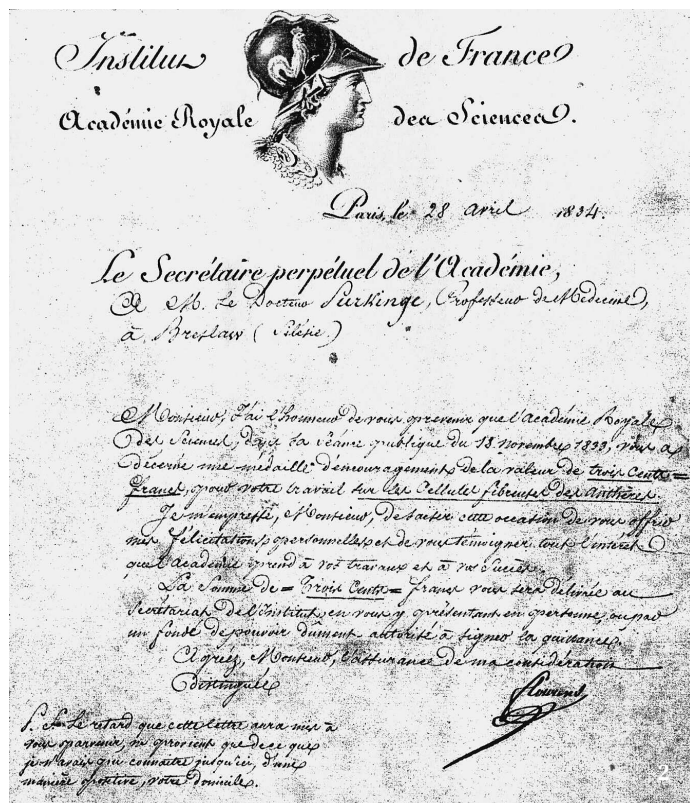 Institut de France
Académie Royale des Sciences.
Paris, le 28 avril 1834.
Le Secrétaire perpétuel de l'Académie,
A M. le Docteur Purkinge, Professeur de Médecine,
à Breslaw (Silésie)
Monsieur, J'ai l'honneur de vous prévenir que l'Académie Royale
des Sciences, dans sa séance publique du 18 novembre 1833, vous a
décerné une médaille d'encouragement de la valeur de trois Cents =
francs, pour votre travail sur les Cellules fibreuses des Anthères.
Je m'empresse, Monsieur, de saisir cette occasion de vous offrir
mes félicitations personnelles et de vous témoigner tout l'intérêt
que l'Académie prend à vos travaux et à vos succès.
La Somme de = Trois Cents = francs vous sera délivrée au
Secrétariat de l'Institut, en vous y présentant en personne, ou par
un fondé de pouvoir dûment autorisé à signer la quittance.
Agréez, Monsieur, l'assurance de ma considération
Distinguée
Flourens
P. S. Le retard que cette lettre aura mis à
vous parvenir, ne provient que de ce que
je n'avais pu connaître jusqu'ici, d'une
manière positive, votre domicile.
2